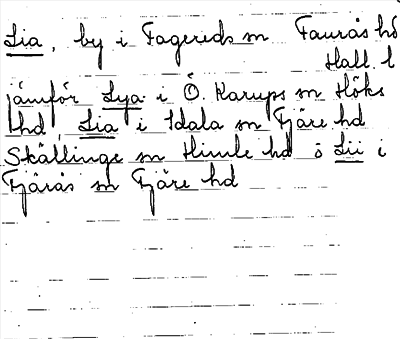 Lia, by i Fagereds sn Faurås hd
Hall. l
jämför Lya i Ö. Karups sn Höks
hd, Lia i Idala sn Fjäre hd
Skällinge sn Himle hd o Lii i
Fjärås sn Fjäre hd